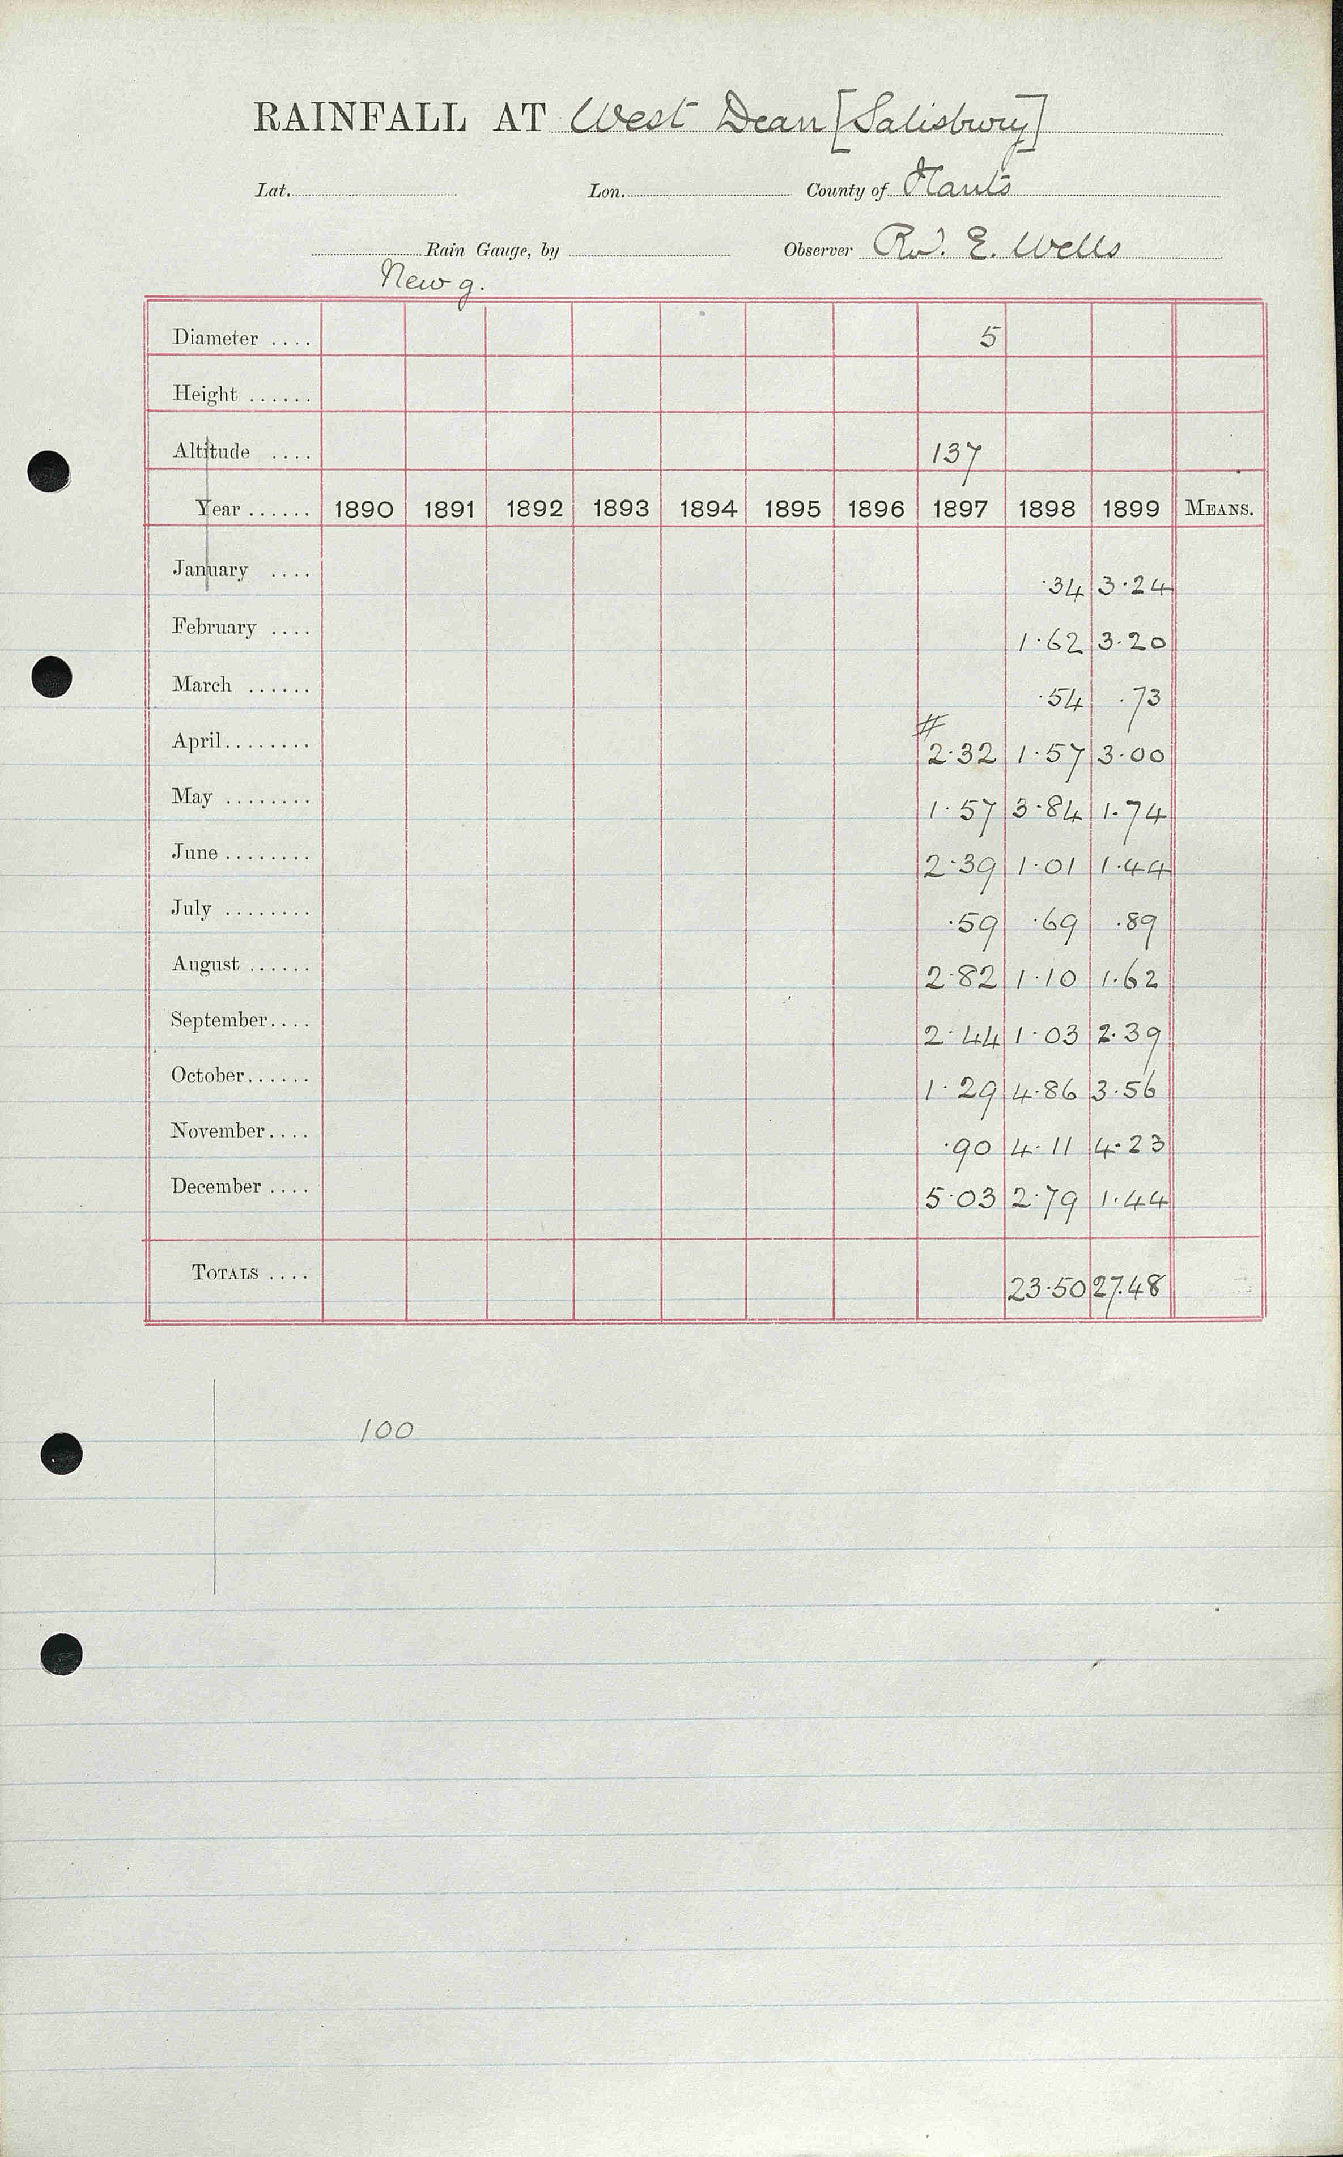 RAINFALL AT West Dean [Salisbury]
Lat. Lon. County of Hants
Rain Gauge, by Observer Rev. E. Wells
New g.
Diameter .... 5
Height ......
Altitude .... 137
Year ...... 1890 1891 1892 1893 1894 1895 1896 1897 1898 1899 MEANS.
January .... ·34 3·24
February .... 1·62 3·20
March ...... ·54 ·73
#
April........ 2·32 1·57 3·00
May ........ 1·57 3·84 1·74
June ........ 2·39 1·01 1·44
July ........ ·59 ·69 ·89
August ...... 2·82 1·10 1·62
September.... 2·44 1·03 2·39
October...... 1·29 4·86 3·56
November.... ·90 4·11 4·23
December .... 5·03 2·79 1·44
TOTALS .... 23·50 27·48
100